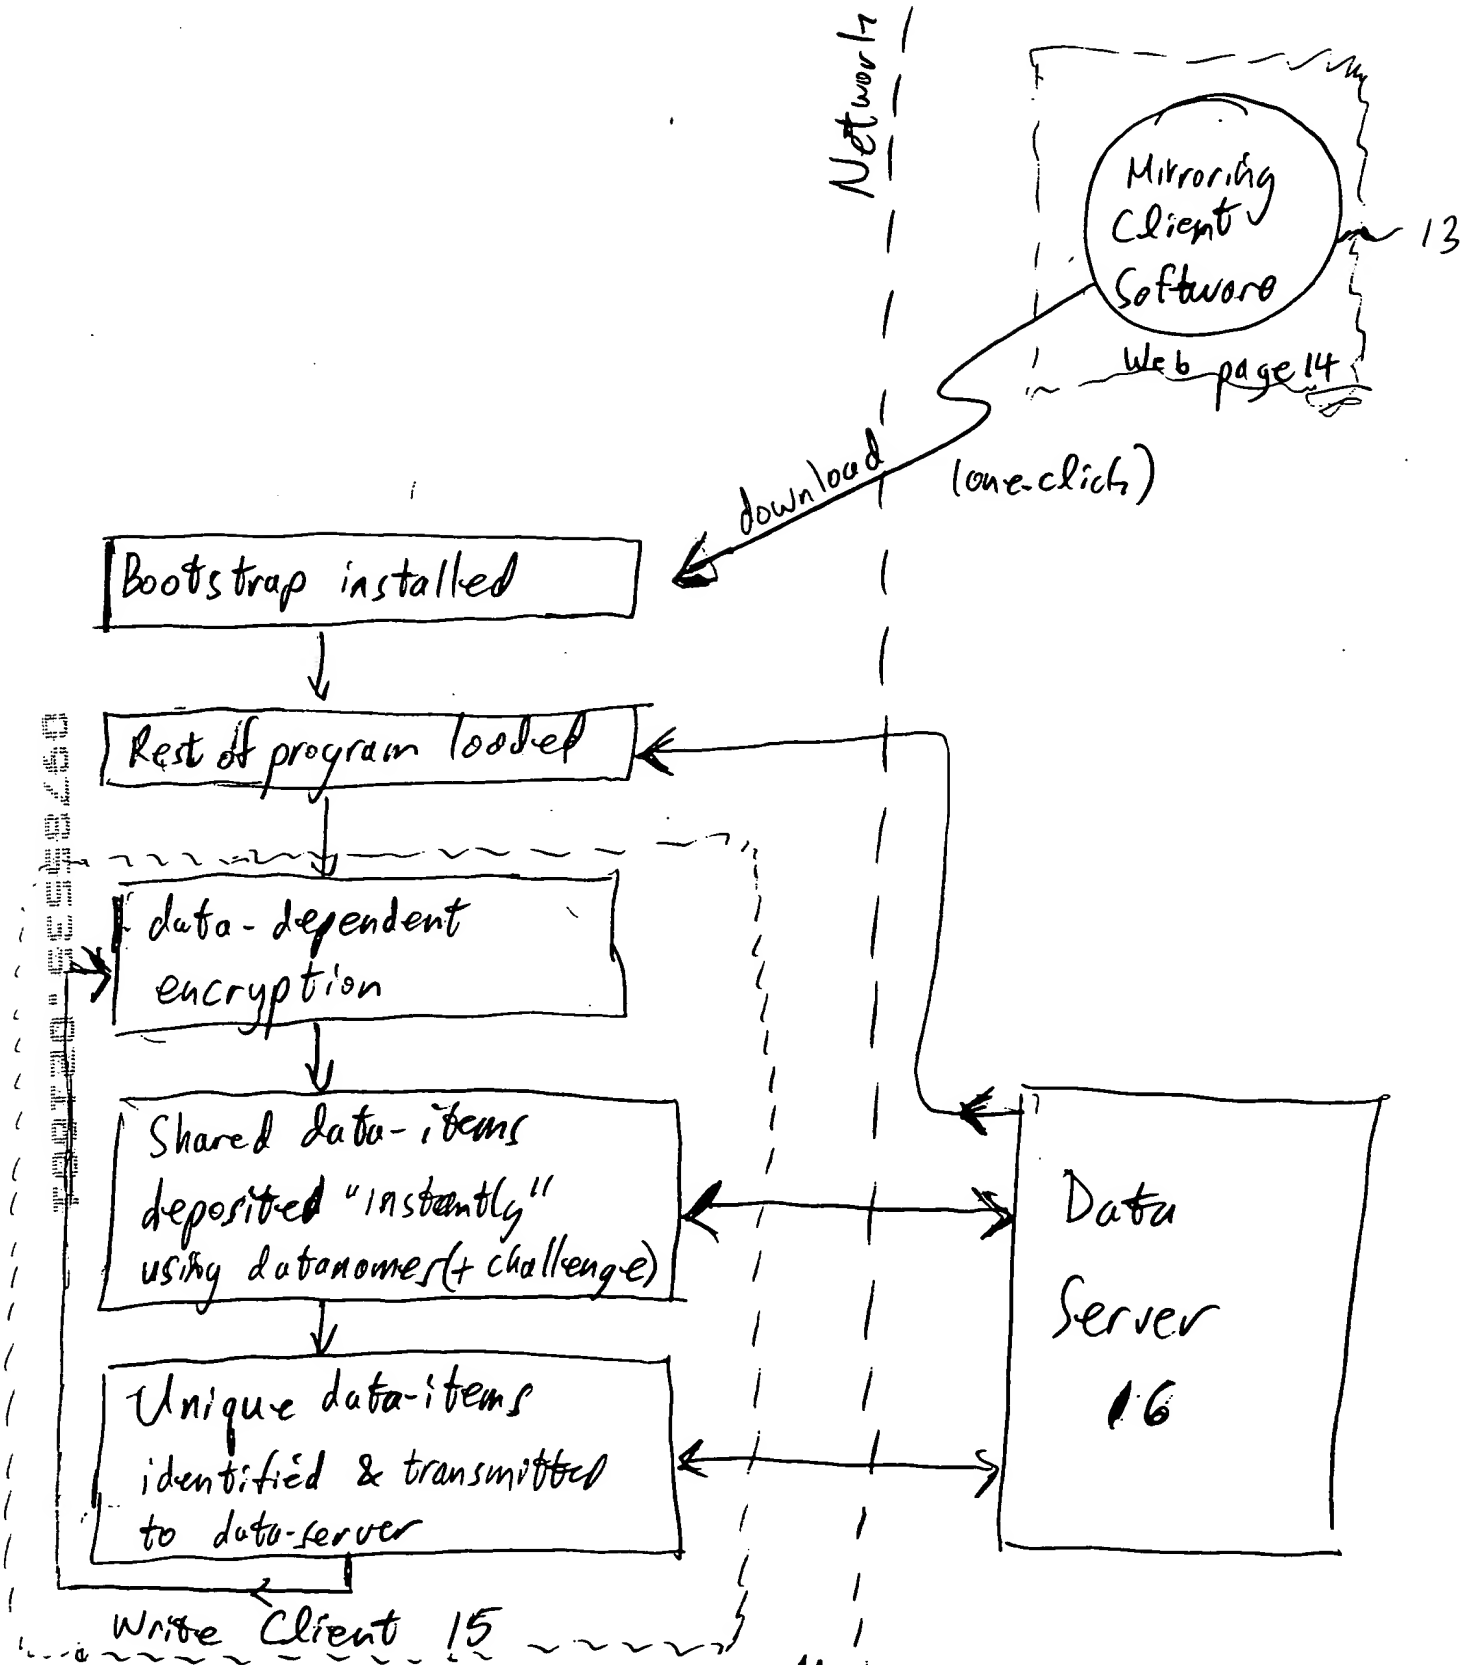 Network
Mirroring
Client
Software
13
Web page 14
download
(one-click)
Bootstrap installed
Rest of program loaded
data-dependent
encryption
Shared data-items
deposited "instantly"
using datanames (+ challenge)
Data
Server
16
Unique data-items
identified & transmitted
to data-server
Write Client 15